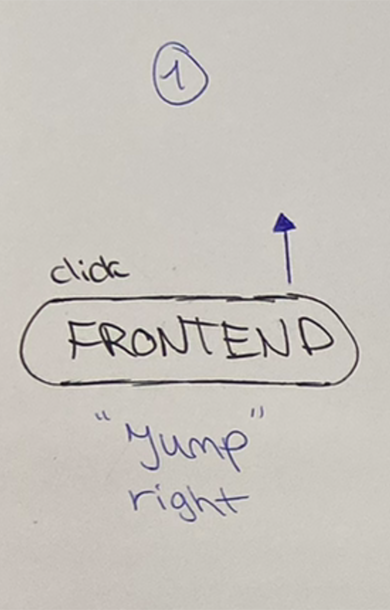 1
click
FRONTEND
"Jump"
right